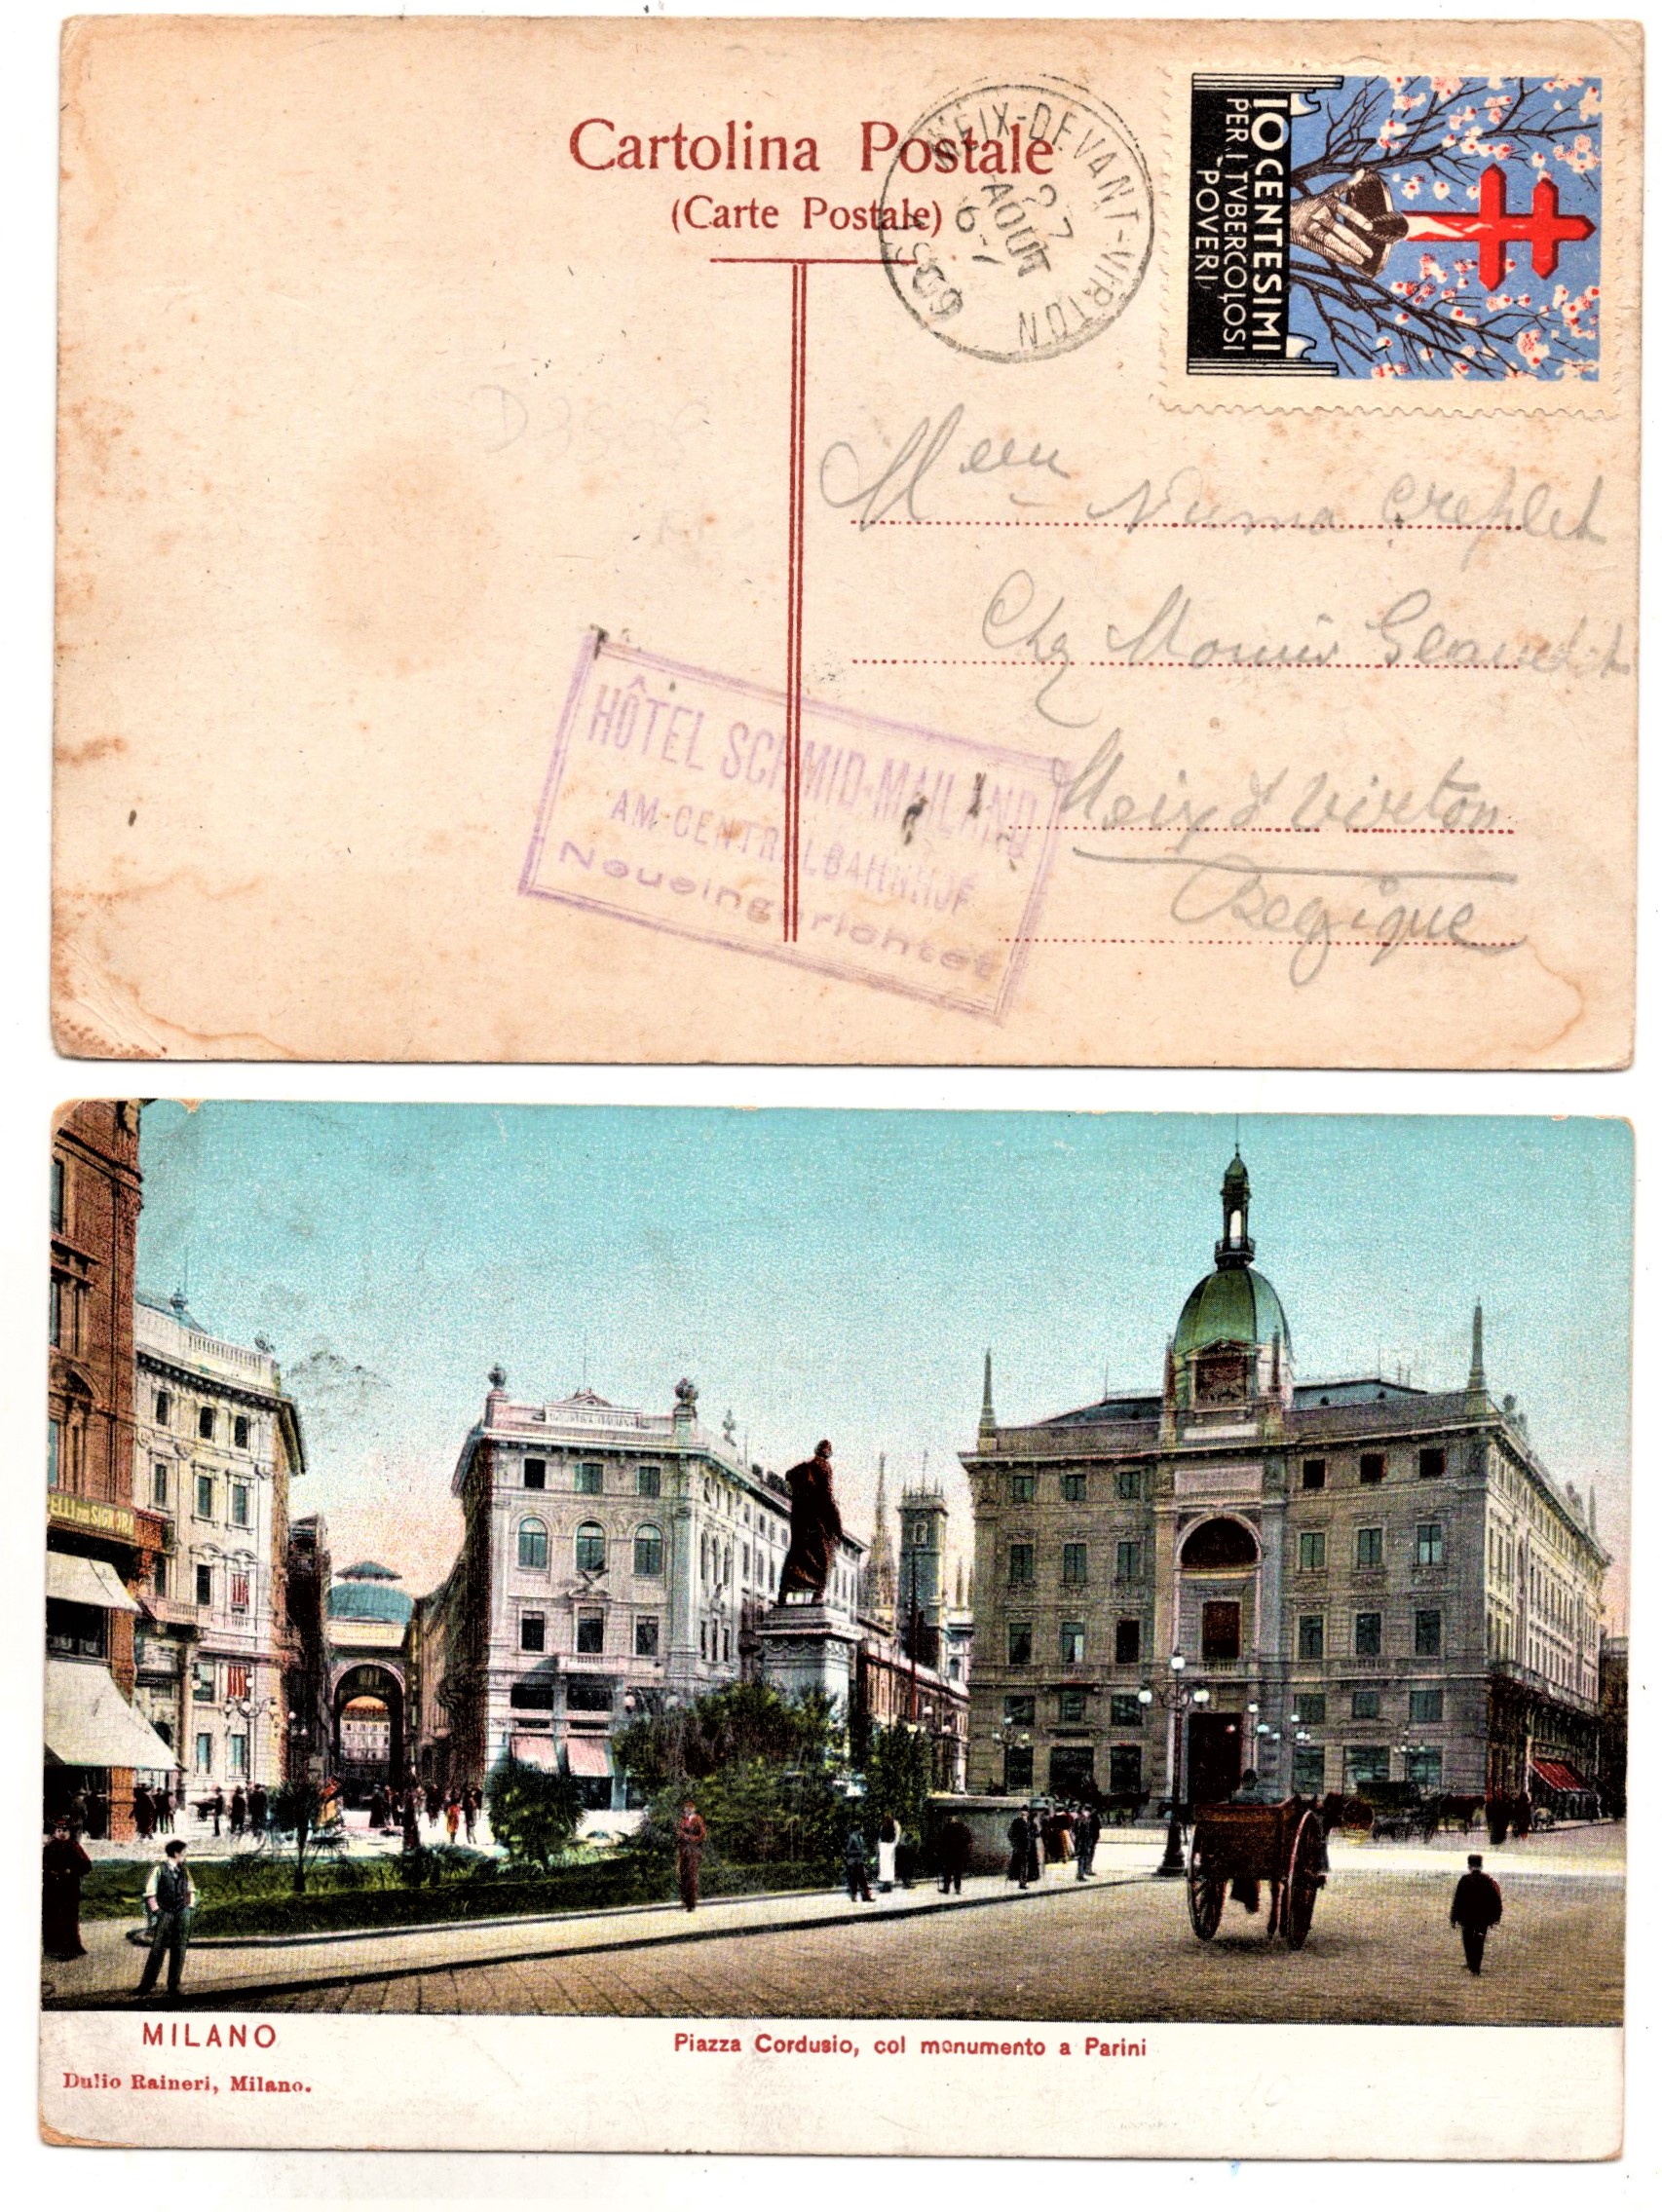 Cartolina Postale
(Carte Postale)
MEIX-DEVANT-VIRTON
27
AOUT
6-7
1909
10 CENTESIMI
PER I TVBERCOLOSI
POVERI
D3508
Numa Creplet
Chez
Meix d Virton
Belgique
HÔTEL SCHMID-MAILAND
AM CENTRALBAHNHOF
Neueingerichtet
ELLI PER SIGNORA
MILANO
Piazza Cordusio, col monumento a Parini
Dulio Raineri, Milano.